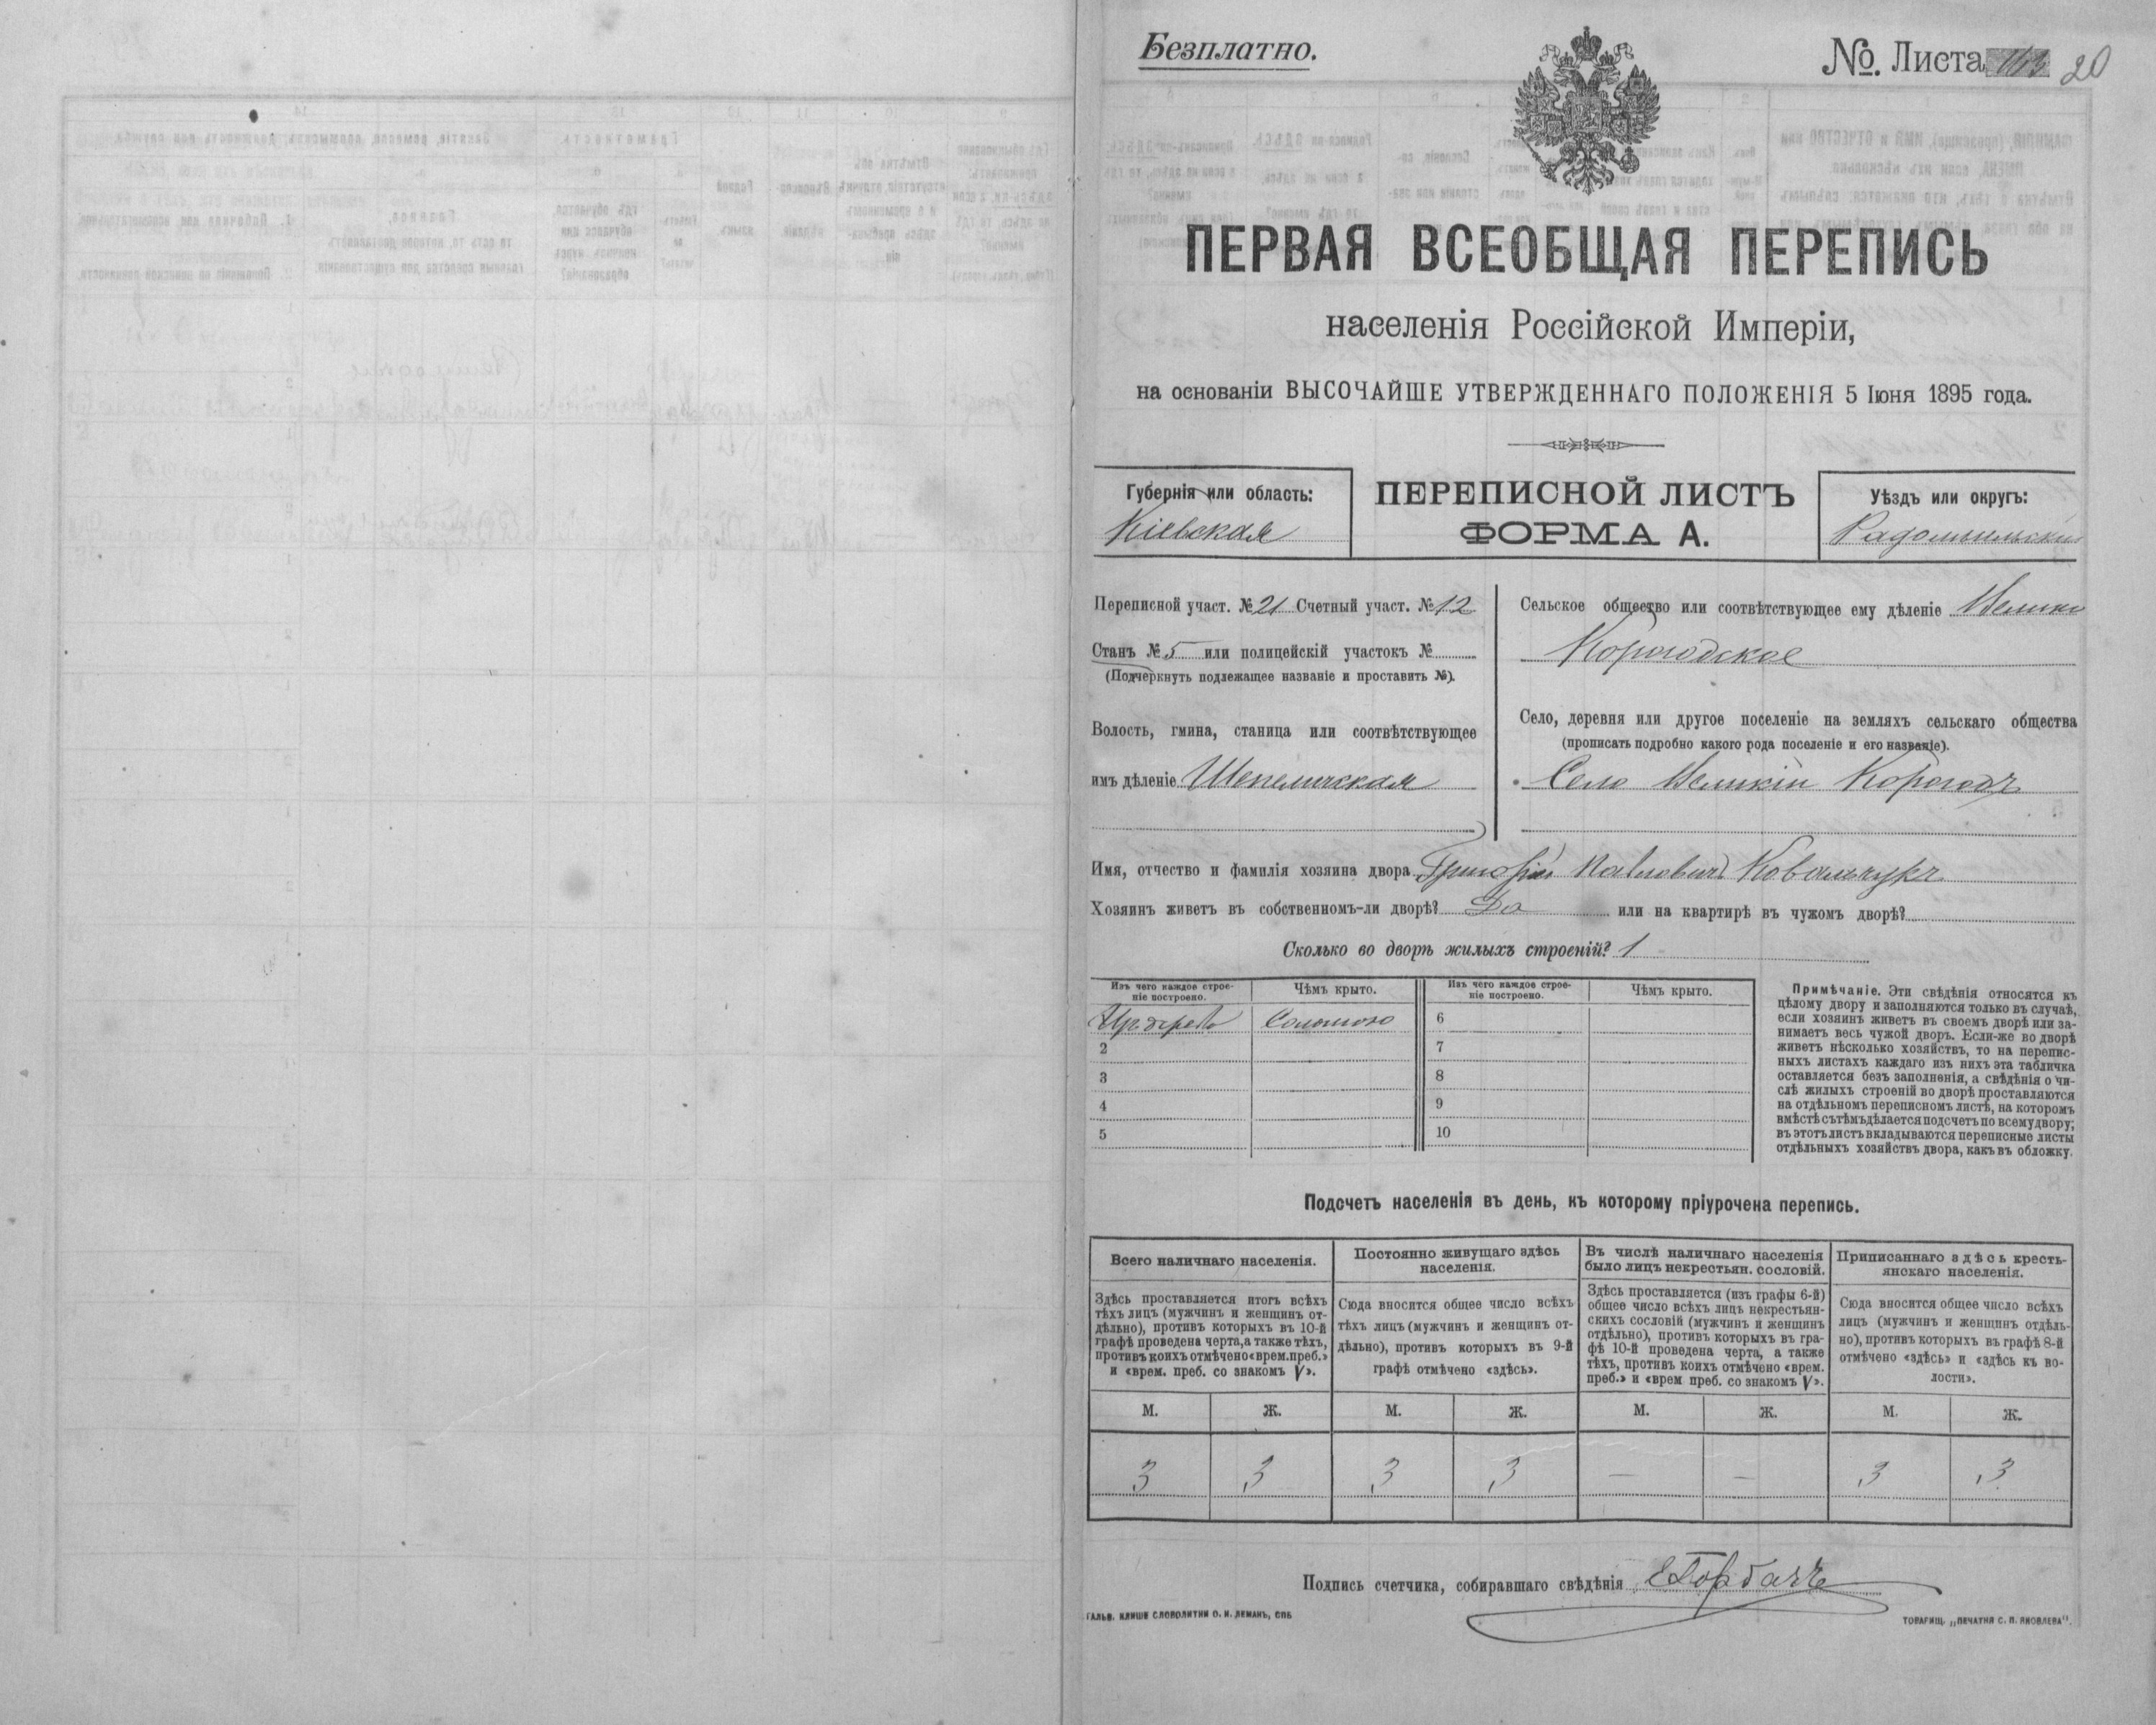 Безплатно.
№. Листа 20
ПЕРВАЯ ВСЕОБЩАЯ ПЕРЕПИСЬ
населенія Россійской Имперіи,
на основаніи ВЫСОЧАЙШЕ УТВЕРЖДЕННАГО ПОЛОЖЕНІЯ 5 Іюня 1895 года.
Губернія или область:
Кіевская
ПЕРЕПИСНОЙ ЛИСТЪ
ФОРМА А.
Уѣздъ или округъ:
Радомысльскій
Переписной участ. № 21 Счетный участ. № 12
Станъ № 5 или полицейскій участокъ №
(Подчеркнуть подлежащее названіе и проставить №).
Волость, гмина, станица или соотвѣтствующее
имъ дѣленіе Шепеличская
Сельское общество или соотвѣтствующее ему дѣленіе Велико
Корогодское
Село, деревня или другое поселеніе на земляхъ сельскаго общества
(прописать подробно какого рода поселеніе и его названіе).
Село Великій Корогодъ
Имя, отчество и фамилія хозяина двора Григорій Павловичъ Ковальчукъ
Хозяинъ живетъ въ собственномъ-ли дворѣ? Да или на квартирѣ въ чужомъ дворѣ?
Сколько во дворѣ жилыхъ строеній? 1
Изъ чего каждое строе-
ніе построено.
Чѣмъ крыто.
Изъ чего каждое строе-
ніе построено.
Чѣмъ крыто.
Изъ дерева Соломою 6
2 7
3 8
4 9
5 10
Примѣчаніе. Эти свѣдѣнія относятся къ
цѣлому двору и заполняются только въ случаѣ,
если хозяинъ живетъ въ своемъ дворѣ или за-
нимаетъ весь чужой дворъ. Если-же во дворѣ
живетъ нѣсколько хозяйствъ, то на перепис-
ныхъ листахъ каждаго изъ нихъ эта табличка
оставляется безъ заполненія, а свѣдѣнія о чи-
слѣ жилыхъ строеній во дворѣ проставляются
на отдѣльномъ переписномъ листѣ, на которомъ
вмѣстѣ съ тѣмъ дѣлается подсчетъ по всему двору;
въ этотъ листъ вкладываются переписные листы
отдѣльныхъ хозяйствъ двора, какъ въ обложку.
Подсчетъ населенія въ день, къ которому пріурочена перепись.
Всего наличнаго населенія.
Здѣсь проставляется итогъ всѣхъ
тѣхъ лицъ (мужчинъ и женщинъ от-
дѣльно), противъ которыхъ въ 10-й
графѣ проведена черта, а также тѣхъ,
противъ коихъ отмѣчено «врем. преб.»
и «врем. преб. со знакомъ V».
Постоянно живущаго здѣсь
населенія.
Сюда вносится общее число всѣхъ
тѣхъ лицъ (мужчинъ и женщинъ от-
дѣльно), противъ которыхъ въ 9-й
графѣ отмѣчено «здѣсь».
Въ числѣ наличнаго населенія
было лицъ некрестьян. сословій.
Здѣсь проставляется (изъ графы 6-й)
общее число всѣхъ лицъ некрестьян-
скихъ сословій (мужчинъ и женщинъ
отдѣльно), противъ которыхъ въ гра-
фѣ 10-й проведена черта, а также
тѣхъ, противъ коихъ отмѣчено «врем.
преб.» и «врем преб. со знакомъ V».
Приписаннаго здѣсь кресть-
янскаго населенія.
Сюда вносится общее число всѣхъ
лицъ (мужчинъ и женщинъ отдѣль-
но), противъ которыхъ въ графѣ 8-й
отмѣчено «здѣсь» и «здѣсь къ во-
лости».
М. Ж. М. Ж. М. Ж. М. Ж.
3 3 3 3 — — 3 3
Подпись счетчика, собиравшаго свѣдѣнія ЕГорбачъ
ГАЛЬВ. КЛИШЕ СЛОВОЛИТНИ О. И. ЛЕМАНЪ, СПБ
ТОВАРИЩ. „ПЕЧАТНЯ С. П. ЯКОВЛЕВА".